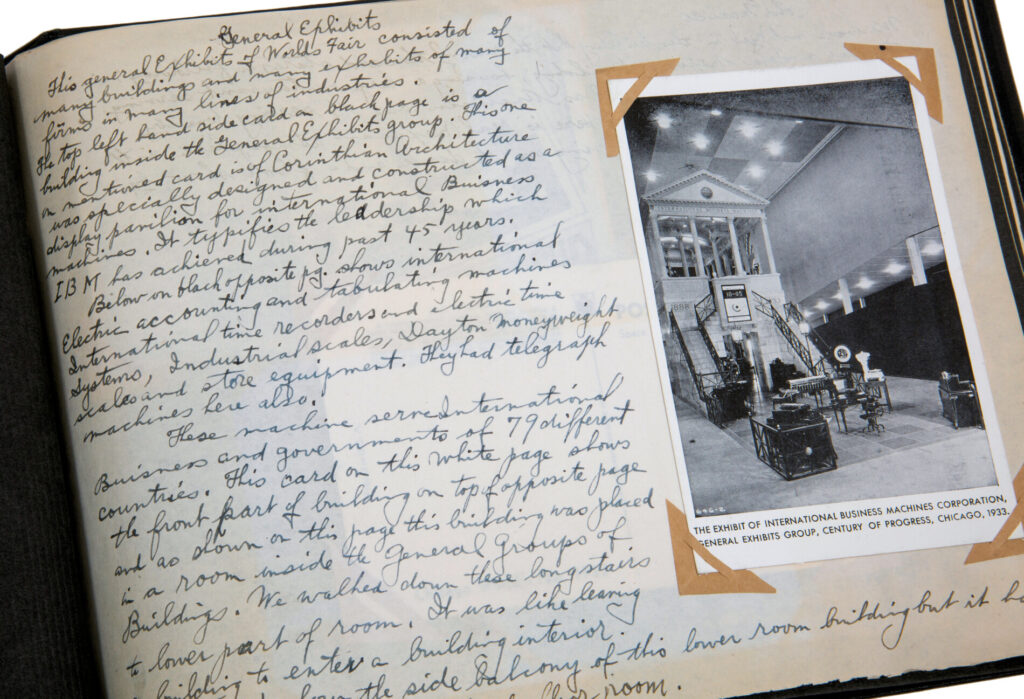 General Exhibits
This general Exhibits of Worlds Fair consisted of
many buildings and many exhibits of many
firms in many lines of industries.
The top left hand side card on black page is a
building inside the General Exhibits group. This one
on mentioned card is of Corinthian Architecture
was specially designed and constructed as a
display pavilion for international Buisness
machines. It typifies the leadership which
IBM has achieved during past 45 years.
Below on black opposite pg. shows international
Electric accounting and tabulating machines
International time recorders and electric time
systems, Industrial scales, Dayton moneyweight
scales and store equipment. They had telegraph
machines here also.
These machine serve International
Buisness and governments of 79 different
countries. This card on this white page shows
the front part of building on top of opposite page
and as shown on this page this building was placed
in a room inside the General Groups of
Buildings. We walked down these long stairs
to lower part of room. It was like leaving
building to enter a building interior.
down the side balcony of this lower room building but it
room.
THE EXHIBIT OF INTERNATIONAL BUSINESS MACHINES CORPORATION,
GENERAL EXHIBITS GROUP, CENTURY OF PROGRESS, CHICAGO, 1933.